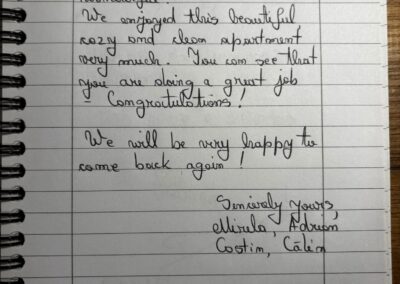 We enjoyed this beautiful,
cozy and clean apartment
very much. You can see that
you are doing a great job
- Congratulations!
We will be very happy to
come back again!
Sincerely yours,
Mirela, Adrian
Costin, Călin